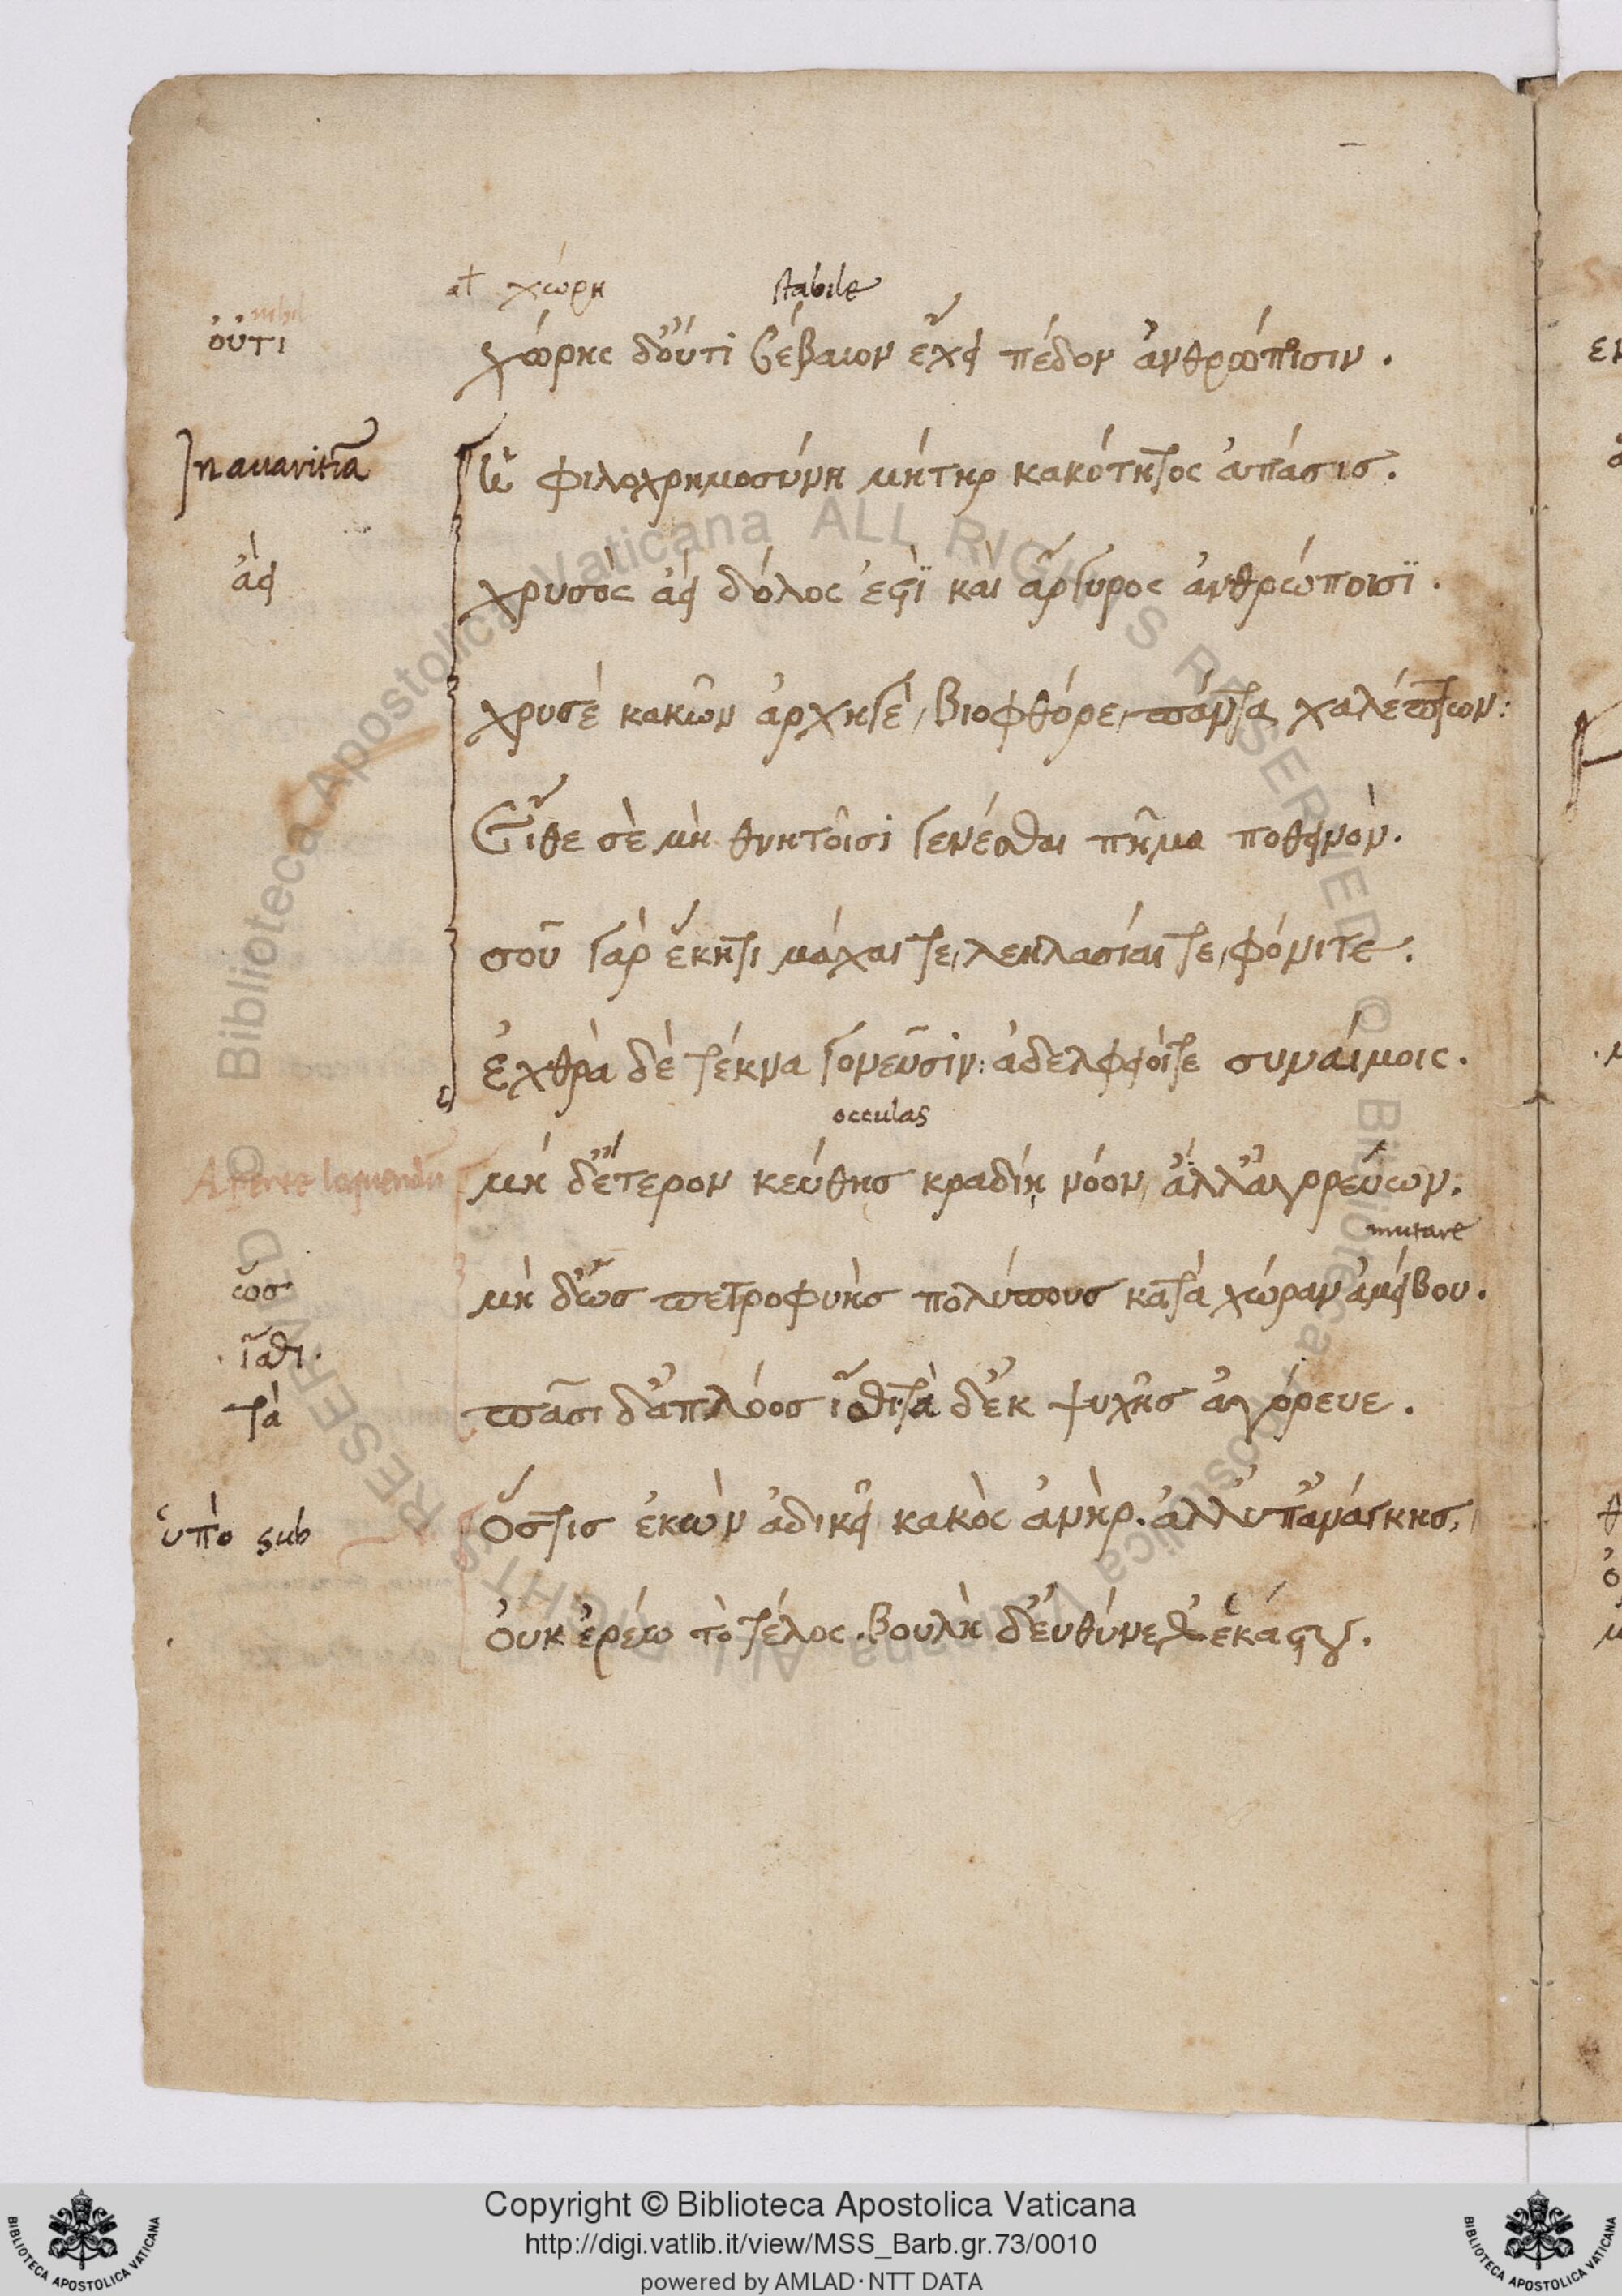 al χώρη stabile
nihil
οὔτι χώρης δ᾽οὔτι βέβαιον ἔχει πέδον ἀνθρώποισιν.
In auaritiā Ἡ φιλοχρημοσύνη μήτηρ κακότητος ἁπάσης.
ἀεὶ χρυσὸς ἀεὶ δόλος ἐςὶ καὶ ἄργυρος ἀνθρώποισϊ.
χρυσέ κακῶν ἀρχηγέ, βιοφθόρε, πάντα χαλέπτων:
Εἴθε σὲ μὴ θνητοῖσι γενέσθαι πῆμα ποθεινὸν.
σοῦ γὰρ ἕκητι μάχαι τε, λεηλασίαι τε, φόνιτε.
ἐχθρὰ δὲ τέκνα γονεῦσιν: ἀδελφειόι τε συναίμοις.
occulas
Aperte loquendū μὴ δ᾽ἕτερον κεύθης κραδίῃ νόον, ἄλλ᾽ἀγορεύων:
mutare
ὡσ μὴ δ᾽ὡσ πετροφυὴσ πολύπουσ κατὰ χώραν ἀμείβου.
ἴσθι.
τὰ πᾶσι δ᾽ἁπλόοσ ἴσθι, τὰ δ᾽ἐκ ψυχῆσ ἀγόρευε.
ὑπὸ sub Ὅστισ ἑκὼν ἀδικεῖ κακὸς ἀνὴρ. ἀλλ᾽ὑπ᾽ἀνάγκησ,
ὀυκ ἐρέω τὸ τέλος. βουλὴ δ᾽ἐυθύνεθ᾽ ἑκάςου.
Copyright © Biblioteca Apostolica Vaticana
http://digi.vatlib.it/view/MSS_Barb.gr.73/0010
powered by AMLAD·NTT DATA
BIBLIOTECA APOSTOLICA VATICANA
BIBLIOTECA APOSTOLICA VATICANA
© Biblioteca Apostolica Vaticana ALL RIGHTS RESERVED
© Biblioteca Apostolica Vaticana ALL RIGHTS RESERVED